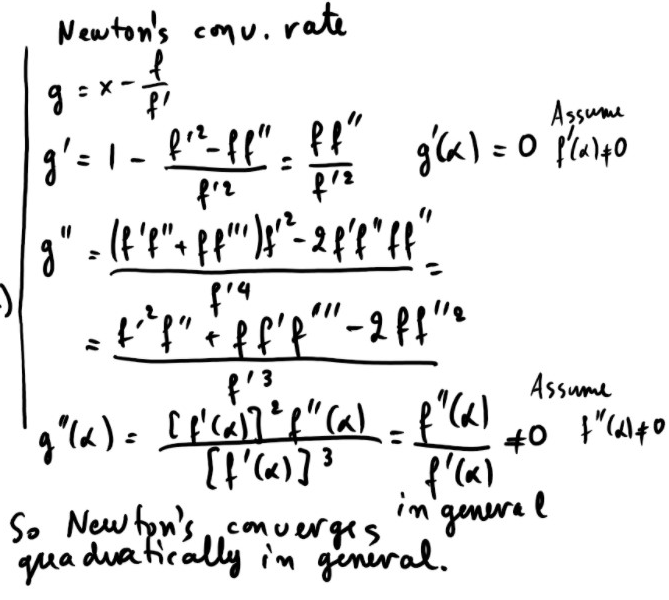 Newton's conv. rate
g = x - f/f'
Assume
g' = 1 - (f'² - ff'')/f'² = ff''/f'² g'(α) = 0 f'(α) ≠ 0
g'' = ((f'f'' + ff''')f'² - 2f'f''ff'')/f'⁴ =
= (f'²f'' + ff'f''' - 2ff''²)/f'³
Assume
g''(α) = [f'(α)]²f''(α)/[f'(α)]³ = f''(α)/f'(α) ≠ 0 f''(α) ≠ 0
in general
So Newton's converges
quadratically in general.